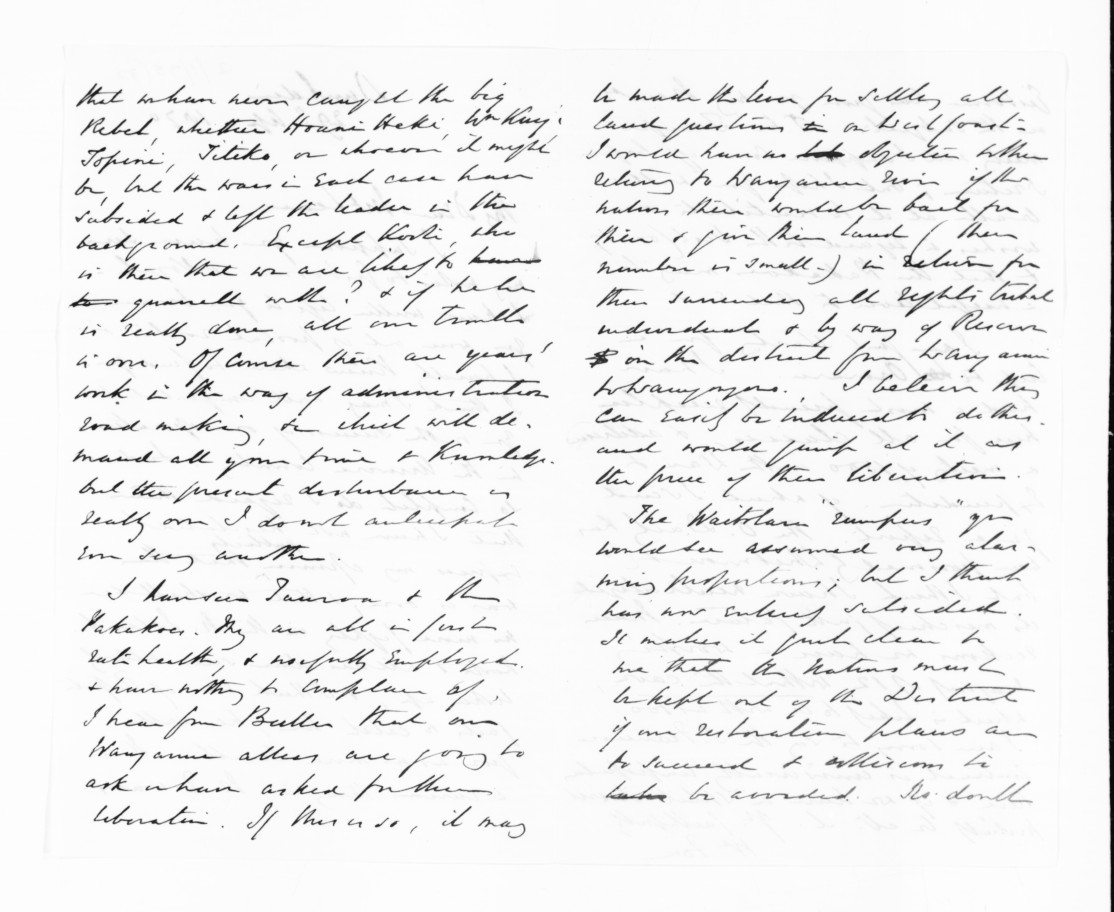 that we have never caught the big
Rebel, whether Honi Heki, Wm King,
Topine, Titoko, or whoever it might
be, but the wars in each case have
subsided & left the leader in the
background. Except Kooti, who
is there that we are likely to
quarrell with? & if he be
is really done, all our trouble
is over. Of course there are years'
work in the way of administration
road making, &c which will de-
mand all your time & knowledge.
but the present disturbance is
really over I do not anticipate
ever seeing another.
I have seen Tauroa & the
Pakakohes. They are all in first
rate health, & usefully employed.
& have nothing to complain of.
I hear from Buller that our
Wanganui allies are going to
ask or have asked for their
liberation. If this is so, it may
be made the lever for settling all
land questions on West Coast-
I would have no objection to their
returning to Wanganui River if the
natives there would be bail for
them & give them land (their
number is small-) in return for
their surrendering all rights tribal
individual & by way of Reserve
in the district from Wanganui
to Waingongoro. I beleive they
can easily be induced to do this.
and would jump at it as
the price of their liberation.
The Waitotara "rumpus" you
would see assumed very alar-
ming proportions; but I think
has now entirely subsided.
It makes it quite clear to
me that the Natives must
be kept out of the District
if our restoration plans are
to succeed & collisions to
be avoided. No doubt